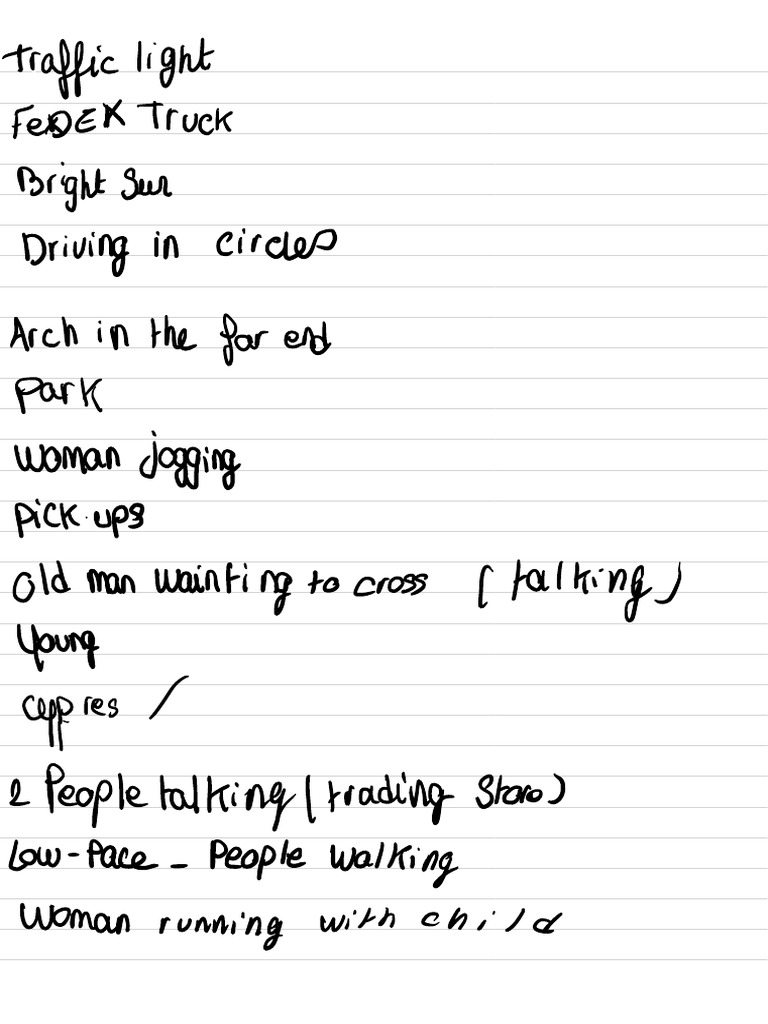 Traffic light
FeDEX Truck
Bright Sun
Driving in circles
Arch in the far end
Park
woman jogging
Pick-ups
Old man wainting to cross (talking)
Young
ceppres /
2 People talking (trading Store)
Low-Pace - People walking
Woman running with child